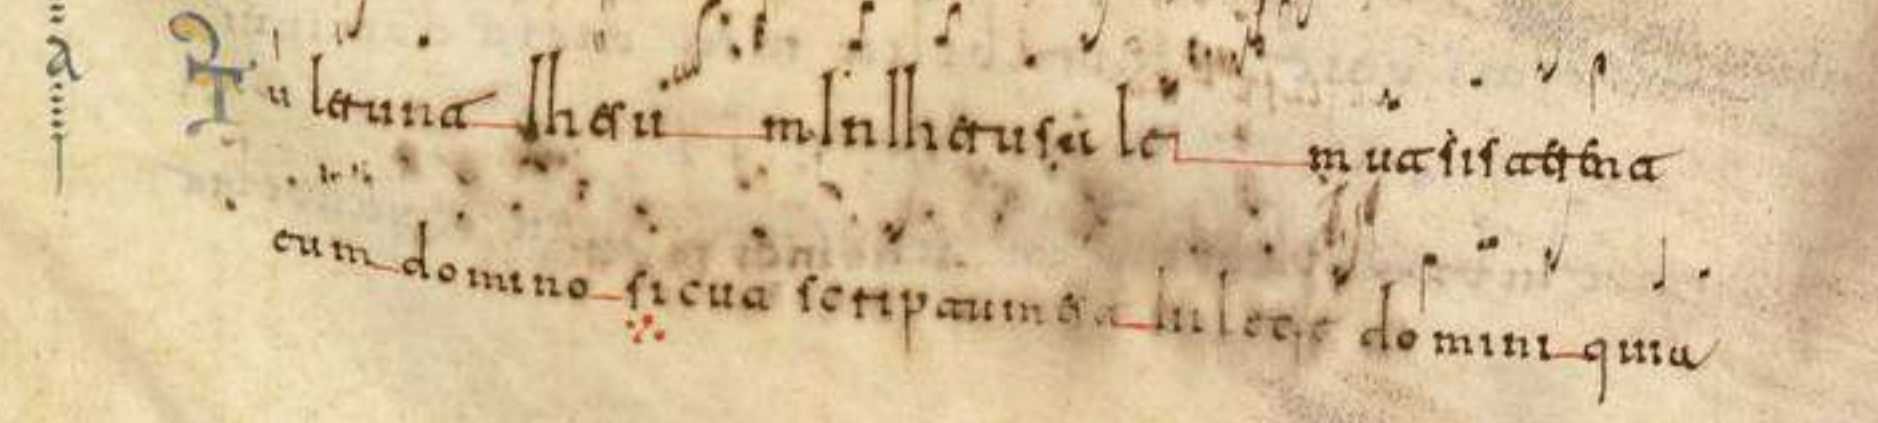 Tulerunt Ihesum In Iherusalem ut sisterent
eum domino sicut scriptum est In lege domini quia